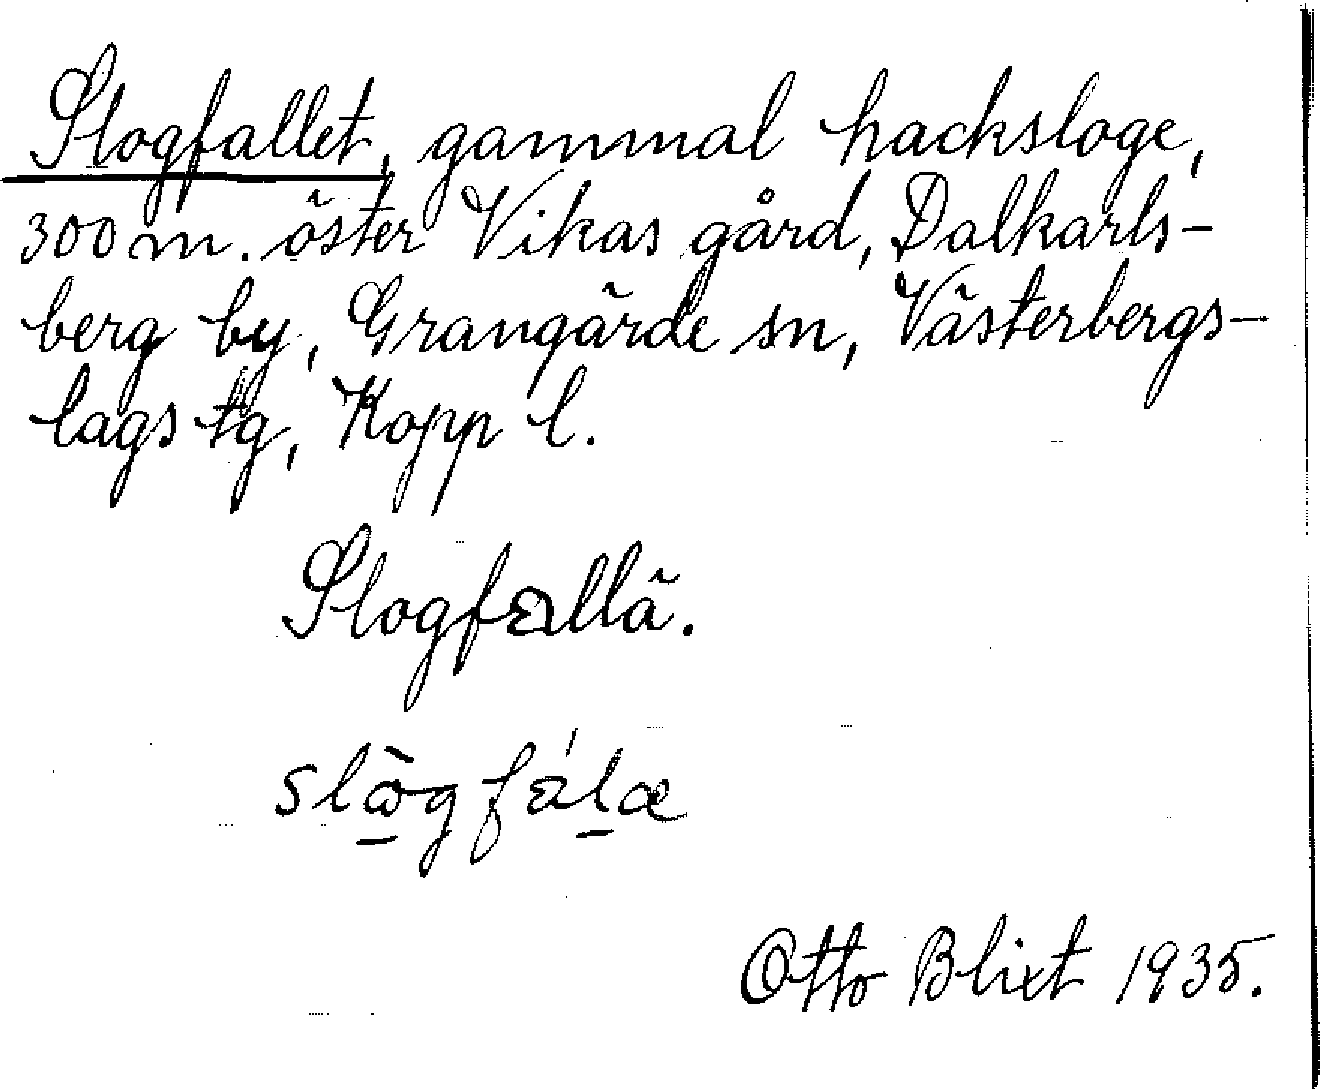 Slogfallet, gammal hacksloge,
300 m. öster Vikas gård, Dalkarls-
berg by, Grangärde sn, Västerbergs-
lags tg, Kopp l.
Slogfallä.
slὼgfálæ
Otto Blixt 1935.